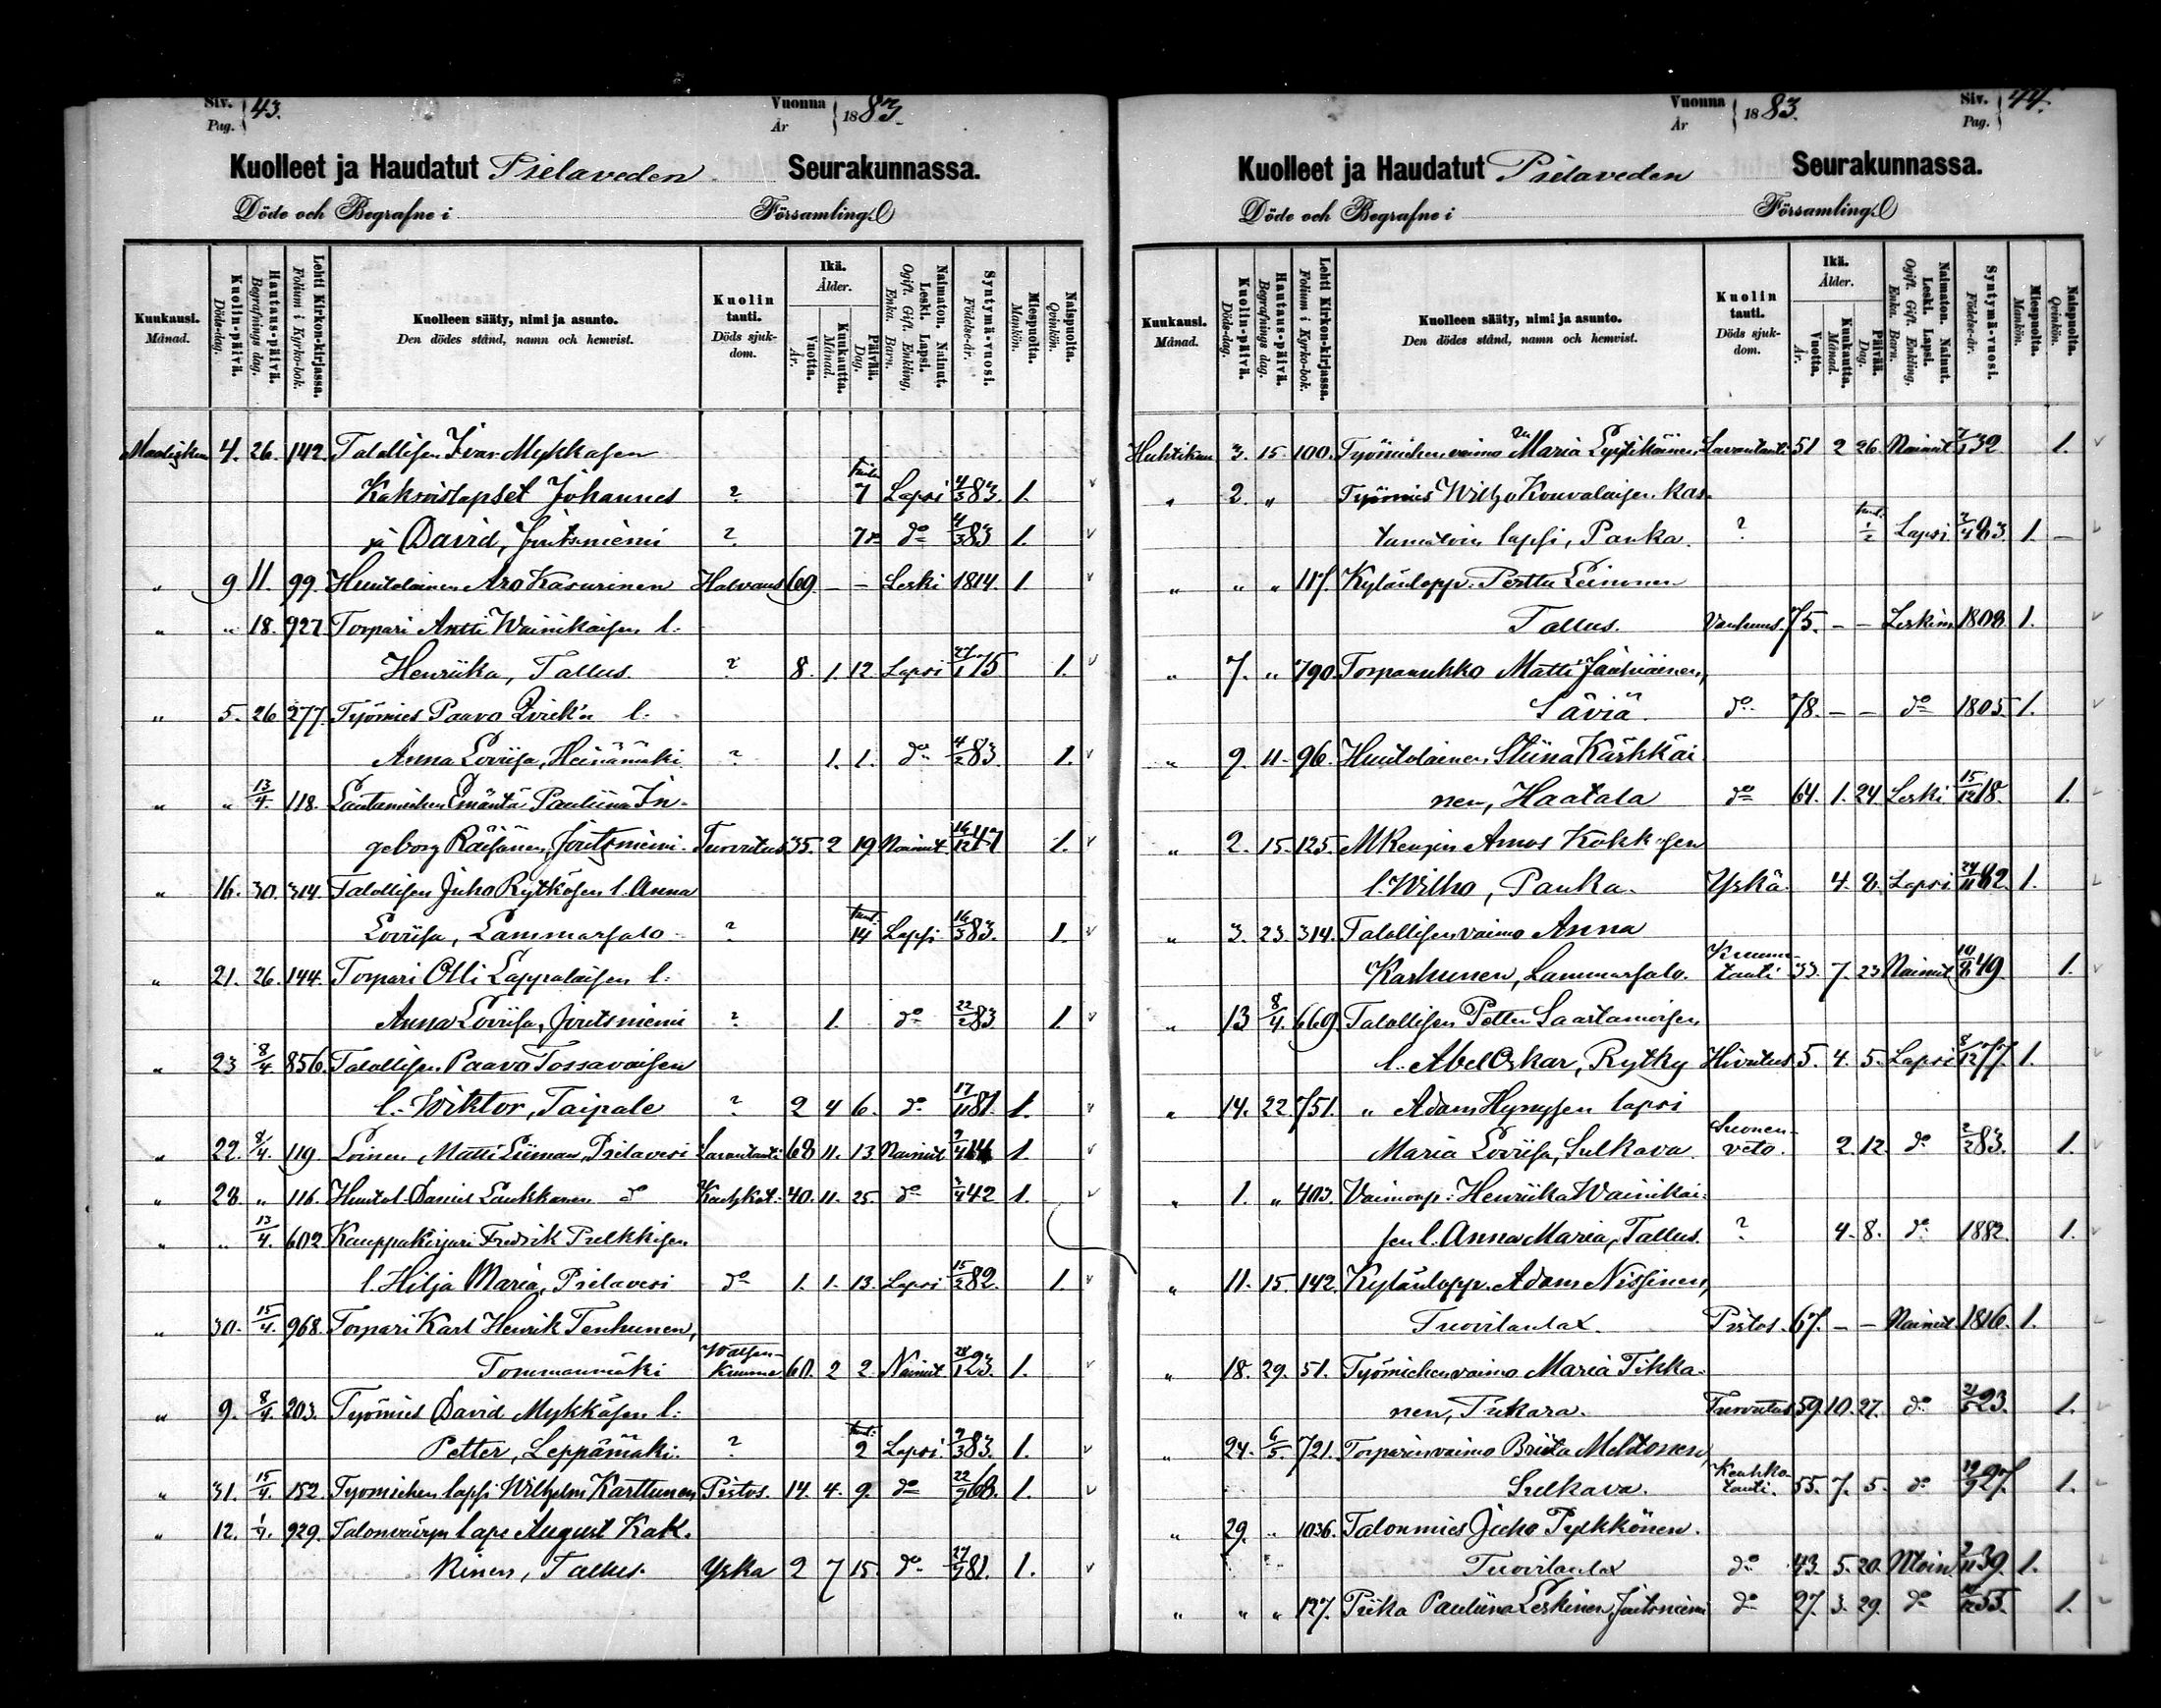 Siv. Pag. 43. Vuonna År 1883.
Kuolleet ja Haudatut Pielaveden Seurakunnassa.
Döde och Begrafne i Församling.
Kuukausi. Månad. Kuolin-päivä. Döds-dag. Hautaus-päivä. Begrafnings dag. Lehti Kirkon-kirjassa. Folium i Kyrko-bok. Kuolleen sääty, nimi ja asunto. Den dödes stånd, namn och hemvist. Kuolin tauti. Döds sjukdom. Ikä. Ålder. Vuotta. År. Kuukautta. Månad. Päivää. Dag. Naimaton. Nainut. Leski. Lapsi. Ogift. Gift. Enkling, Enka. Barn. Syntymä-vuosi. Födelse-år. Miespuolta. Mankön. Naispuolta. Qvinkön.
Maaliskuu 4. 26. 142. Talollisen Ivar Mykkäsen
Kaksoislapset Johannes ? 7 Lapsi 4/3 83. 1.
ja David, Joutsniemi ? 7 do 4/3 83 1.
" 9. 11. 99. Huutolainen Aro Kasurinen Halvaus 69. – – Leski 1814. 1.
" " 18. 927. Torpari Antti Wainikaisen l:
Henriika, Tallus. ? 8. 1. 12. Lapsi 27/1 75 1.
" 5. 26 277. Työmies Paavo Qvick'n l:
Anna Loviisa, Heinämäki ? 1. 1. do 4/2 83. 1.
" " 13/4. 118. Lautamiehen Emäntä Pauliina In-
geborg Räisänen, Joutsniemi. Tuovutus 35. 2 19 Nainut 16/12 47 1.
" 16. 30. 314. Talollisen Juho Rytkösen l. Anna
Loviisa, Lammassalo ? tund. 14 Lapsi 16/3 83. 1.
" 21. 26. 144. Torpari Olli Lappalaisen l:
Anna Loviisa, Joutsniemi ? 1. do 22/2 83 1.
" 23 8/4. 856. Talollisen Paavo Tossavaisen
l. Wiktor, Taipale ? 2 4 6. do 17/11 81. 1.
" 22. 8/4. 119. Loinen Matti Liiman, Pielavesi Lavantauti 68 11. 13. Nainut 9/4 14 1.
" 28. " 116. Huutol. Daniel Laukkanen do Keuhkot. 40. 11. 25. do 3/4 42 1.
" " 13/4. 602. Kauppakirjuri Fredrik Pulkkisen
l. Hilja Maria, Pielavesi do 1. 1. 13. Lapsi 15/2 82. 1.
" 30. 15/4. 968. Torpari Karl Henrik Tenhunen,
Tommanmäki 60. 2 2. Nainut 28/1 23. 1.
" 9. 8/4. 203. Työmies David Mykkäsen l:
Petter, Leppämäki. ? tund. 2 Lapsi 9/3 83. 1.
" 31. 15/4. 152. Tyomiehen lapsi Wilhelm Karttunen Pistos. 14. 4. 9. do 22/11 68. 1.
" 12. 1/4. 929. Talonvävyn laps August Kak-
kinen, Tallus. Yskä 2 7 15. do 27/7 81. 1.
Vuonna År 1883. Siv. Pag. 44.
Kuolleet ja Haudatut Pielaveden Seurakunnassa.
Döde och Begrafne i Församling.
Kuukausi. Månad. Kuolin-päivä. Döds-dag. Hautaus-päivä. Begrafnings dag. Lehti Kirkon-kirjassa. Folium i Kyrko-bok. Kuolleen sääty, nimi ja asunto. Den dödes stånd, namn och hemvist. Kuolin tauti. Döds sjukdom. Ikä. Ålder. Vuotta. År. Kuukautta. Månad. Päivää. Dag. Naimaton. Nainut. Leski. Lapsi. Ogift. Gift. Enkling, Enka. Barn. Syntymä-vuosi. Födelse-år. Miespuolta. Mankön. Naispuolta. Qvinkön.
Huhtikuu 3. 15 100. Työmiehen vaimo Maria Lyytikäinen Lavantauti 51 2 26. Nainut 7/1 32. 1.
" 2. " Työmies Wilho Kouvalaisen kas-
tumatoin lapsi, Panka. ? tund. 1/2 Lapsi 2/4 83. 1. –
" " " 117. Kylänlopp. Perttu Leinonen
Tallus. Vanhuus. 75. – – Leskim 1808. 1.
" 7. " 790. Torpanukko Matti Jääskäinen,
Säviä. do 78. – – do 1805. 1.
" 9. 11. 96. Huutolainen Stiina Kärkkäi-
nen, Haatala do 64. 1. 24. Leski 15/12 18. 1.
" 2. 15. 125. MRengin Amos Kokkosen
l. Wilho, Panka. Yskä. 4. 8. Lapsi 24/11 82. 1.
" 3. 23. 314. Talollisen vaimo Anna
Karhunen, Lammassalo. Kuume-tauti 33. 7. 23 Nainut 10/8 49. 1.
" 13 8/4. 669. Talollisen Petter Saastamoisen
l. Abel Oskar, Rytky Hivutus 5. 4. 5. Lapsi 8/12 77. 1.
" 14. 22. 751. " Adam Hynysen lapsi
Maria Loviisa, Sulkava. Suonen-veto. 2. 12. do 2/2 83. 1.
" 1. " 403. Vaimonp. Henriika Wainikai-
sen l. Anna Maria, Tallus. ? 4. 8. do 1882. 1.
" 11. 15. 142. Kylänlopp. Adam Nissinen,
Tuovilanlax. Pistos. 67. – – Nainut 1816. 1.
" 18. 29. 51. Työmiehen vaimo Maria Tikka-
nen, Pukara. Tuovutus 59. 10. 27. do 21/5 23. 1.
" 24. 6/5. 721. Torparin vaimo Briita Moktonen,
Sulkava. Keuhko-tauti. 55. 7. 5. do 19/9 27. 1.
" 29. " 1036. Talonmies Juho Pulkkönen.
Tuovilanlax do 43. 5. 20. Nain. 9/11 39. 1.
" " " 127. Piika Pauliina Leskinen, Joutsniemi do 27. 3. 29. do 55. 1.